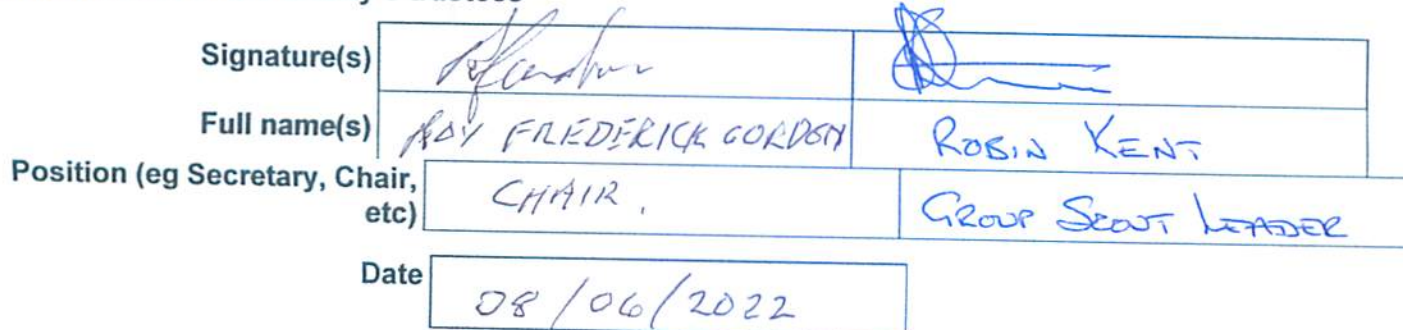 Signature(s)
Full name(s) ROY FREDERICK GORDON ROBIN KENT
Position (eg Secretary, Chair, etc) CHAIR. GROUP SCOUT LEADER
Date 08/06/2022